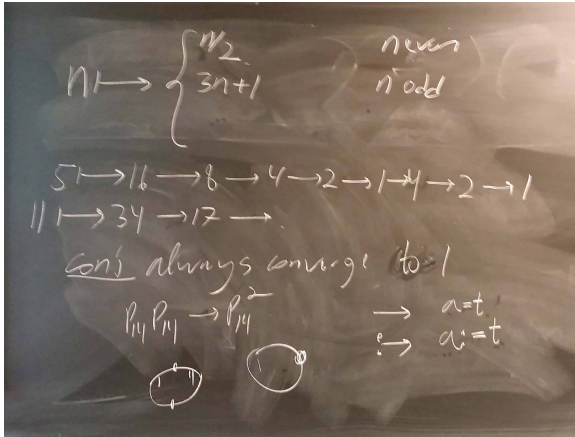 n ↦ { n/2 n even
3n+1 n odd
5 ↦ 16 → 8 → 4 → 2 → 1 → 4 → 2 → 1
11 ↦ 34 → 17 →
conj always converge to 1
P₁₄ P₁₄ → P₁₄² → a=t
: → a:=t